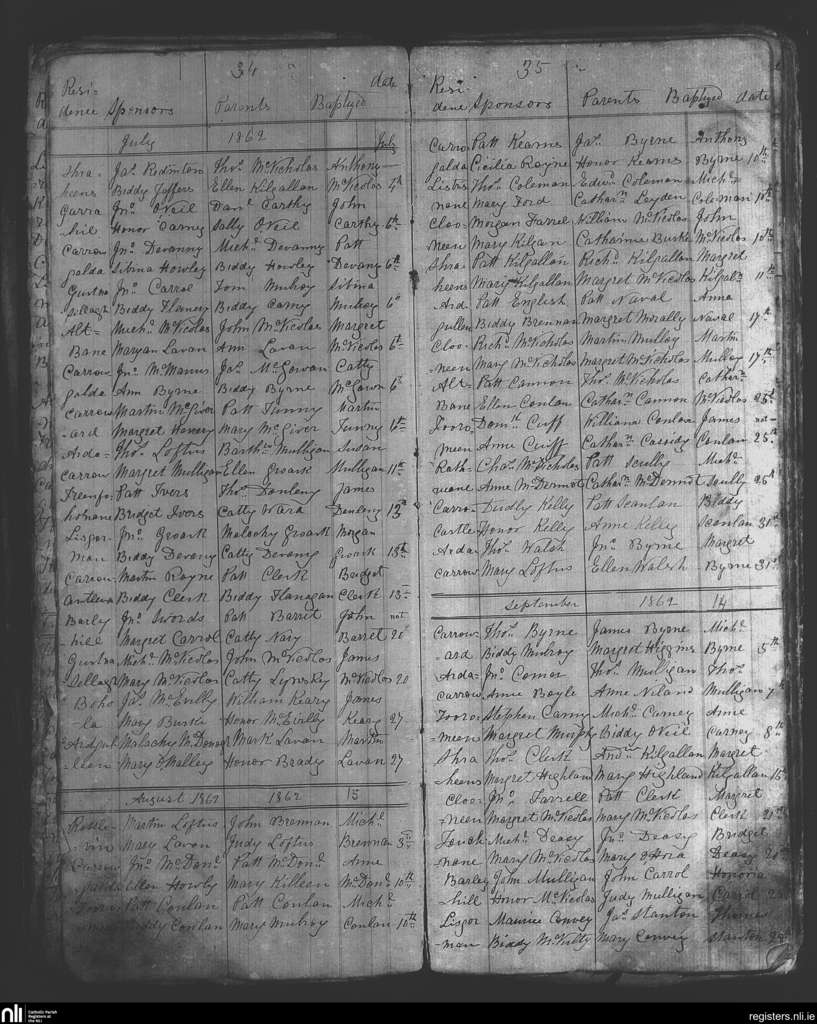 34
date
Resi-
dence Sponsors Parents Baptyzed
July 1862 July
Shra- Jas. Rodinton Thos. McNicholas Anthony
heens Biddy Jeffers Ellen Kilgallan McNicolas 4th
Curra Jno. ONeil Danl. Carthy John
hill Honor Carney Sally ONeil Carthy 6th
Carrow Jno. Devanny Michl. Devanny Patt
galda Sibina Howley Biddy Howley Devany 6th
Gurtna Jno. Carrol Tom Mulroy Sibina
Sellagh Biddy Flanery Biddy Carney Mulroy 6th
Alt= Michl. McNicolas John McNicolas Margret
Bane Maryan Lavan Ann Lavan McNicolas 6th
Carrow Jno. McManus Jas. McGowan Catty
galda Ann Byrne Biddy Byrne McGowan 6th
Carrow Martin McGiver Patt Finny Martin
-ard Margret Hennery Mary McGiver Finny 6th
Arda= Thos. Loftus Barthw. Mulligan Susan
carrow Margret Mulligan Ellen Groark Mulligan 11th
Treenfo- Patt Ivers Thos. Donleny James
Bridget Ivers Catty Ward Donleny 13th
Lisgor- Jno. Groark Malachy Groark Morgan
man Biddy Devany Catty Devany Groark 13th
Carrow Martin Rogne Patt Clerk Bridget
Biddy Clerk Biddy Flanagan Clerk 13th
Barley Jno. Swords Patt Barret John not
-hill Margret Carrol Catty Nary Barret 20
Gurtna Michl. McNicolas John McNicolas James
-Sellagh Mary McNicolas Catty McNicolas 20
Boho Jas. McEvilly William Keary James
la Mary Burke Honor McEvilly Keary 27
Ardgul Malachey McDonagh Mark Lavan Martin
-lien Mary OMalley Honor Brady Lavan 27
August 1862 1862 13
Rattle Martin Loftus John Brennan Michl.
Mary Lavan Judy Loftus Brennan 3rd
Carrow Jno. McDonl. Patt McDonl. Anne
galda Ellen Howly Mary Killeen McDonl. 10th
Patt Conlan Patt Conlan Michl.
Biddy Conlan Mary Mulroy Conlan 10th
35
Resi-
dence Sponsors Parents Baptyzed date
Carro Patt Kearns Jas. Byrne Anthony
galda Cicilia Rogne Honor Kearns Byrne 10th
Listro Thos. Coleman Edwd. Coleman Michl.
mane Mary Ford Catharn. Leyden Coleman 10th
Cloo Morgan Farrel William McNicolas John
neen Mary Kilgan Catharine Burke McNicolas 10th
Shra Patt Kilgallan Richd. Kilgallan Margret
heens Mary Kilgallan Margret McNicolas Kilgaln. 11th
Ard Patt English Patt Naval Anne
gullen Biddy Brennan Margret Morally Naval 17th
Cloo= Richd. McNicholas Martin Mulloy Martin
neen Mary McNicholas Margret McNicholas Mulloy 17th
Alt= Patt Cannon Thos. McNicholas Catharn.
Bane Ellen Conlan Catharn. Cannon McNicolas 23th
Tooro Domk. Cuff William Conlon James not
meen Anne Cuiff Catharn. Cassidy Conlan 25th
Rath- Chas. McNicholas Patt Scully Michl.
Anne McDermot Catharn. McDermot Scully 25th
Carron Dudly Kelly Patt Scanlan Biddy
Castle Honor Kelly Anne Kelly Scanlan 31st
Arda Thos. Walsh Jno. Byrne Margret
carrow Mary Loftus Ellen Walsh Byrne 31st
September 1862 14
Carrow- Thos. Byrne James Byrne Michl.
ard Biddy Mulroy Margret Higgins Byrne 5th
Arda- Jno. Comer Thos. Mulligan Thos.
carrow Anne Boyle Anne Niland Mulligan 7th
Tooro Stephen Carny Michl. Carney Anne
-meen Margret Murphy Biddy ONeil Carney 8th
Shra Thos. Clerk Andw. Kilgallan Margret
-heens Margret Highland Mary Highland Kilgallan 15
Cloo= Jno. Farrell Patt Clerk Margret
-neen Margret McNicolas Mary McNicolas Clerk 21st
Michl. Deasy Jno. Deasy Bridget
-nane Mary McNicolas Mary OHora Deasy 20th
Barley John Mulligan John Carrol Honoria
-hill Honor McNicolas Judy Mulligan Carrol
Lisgor Maurice Convey Jas. Stanton Thomas
-man Biddy McNulty Mary Convey Stanton
nli Catholic Parish Registers at the NLI
registers.nli.ie